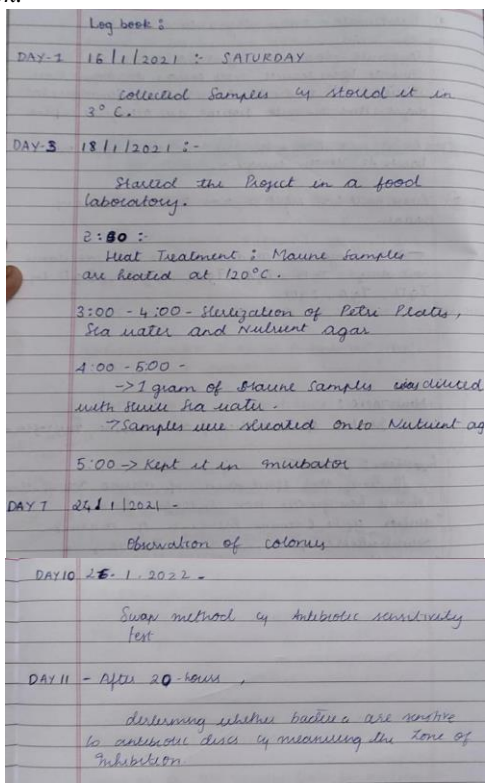 Log book :
DAY-1 16/1/2021 :- SATURDAY
collected Samples & stored it in
3° C.
DAY-3 18/1/2021 :-
Started the Project in a food
laboratory.
2:50 :-
Heat Treatment : Marine Samples
are heated at 120°C.
3:00 - 4:00 - Sterlization of Petri Plates,
Sea water and Nutrient agar
4:00 - 5:00 -
->1 gram of Marine Samples was diluted
with sea water.
->Samples were streaked onto Nutrient ag
5:00 -> Kept it in incubator
DAY 7 24/1/2021 -
Observation of colonies
DAY 10 1.2022 -
Swap method & Antibiotic sensitivity
test
DAY 11 - After 20-hours,
determing whether bacteria are sensitive
to antibiotic discs & measuring the Zone of
Inhibition.